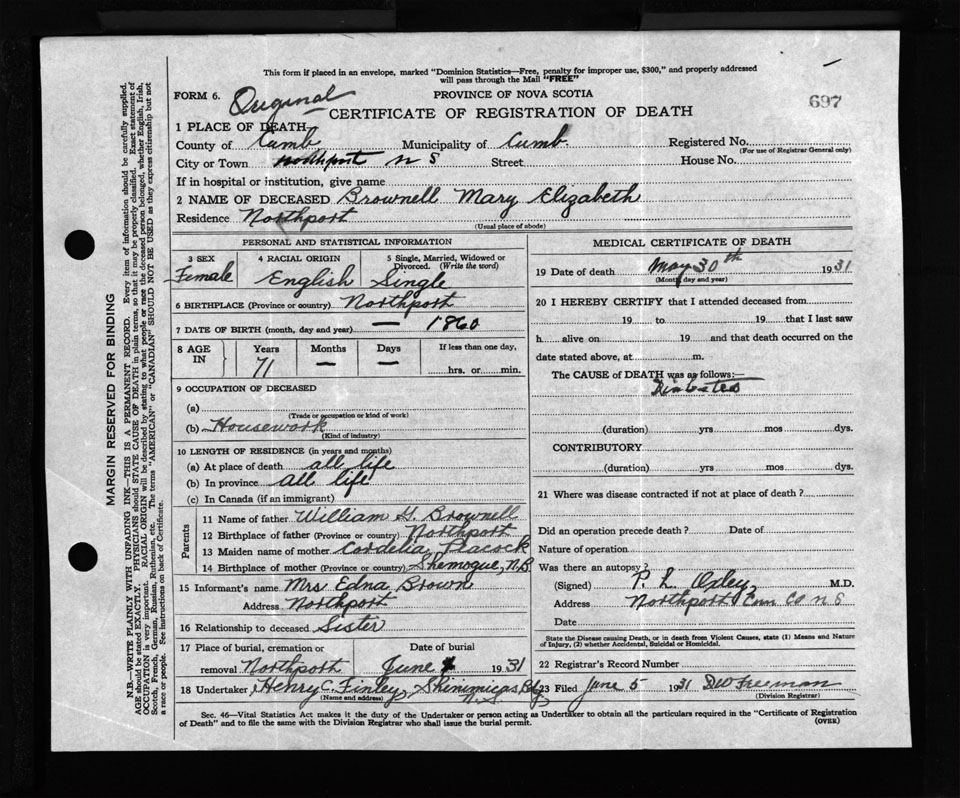 This form if placed in an envelope, marked "Dominion Statistics—Free, penalty for improper use, $300," and properly addressed
will pass through the Mail "FREE"
FORM 6. Original PROVINCE OF NOVA SCOTIA 697
CERTIFICATE OF REGISTRATION OF DEATH
1 PLACE OF DEATH
County of Cumb Municipality of Cumb. Registered No.
(For use of Registrar General only)
City or Town Northport N S Street House No.
If in hospital or institution, give name
2 NAME OF DECEASED Brownell Mary Elizabeth
Residence Northport
(Usual place of abode)
MARGIN RESERVED FOR BINDING
N.B.—WRITE PLAINLY WITH UNFADING INK—THIS IS A PERMANENT RECORD. Every item of information should be carefully supplied.
AGE should be stated EXACTLY. PHYSICIANS should STATE CAUSE OF DEATH in plain terms, so that it may be properly classified. Exact statement of
OCCUPATION is very important. RACIAL ORIGIN will be described by stating to what people or race the deceased person belonged, whether English, Irish,
Scotch, French, German, Russian, Ruthenian, etc. The terms "AMERICAN" or "CANADIAN" SHOULD NOT BE USED as they express citizenship but not
a race or people. See instructions on back of Certificate.
PERSONAL AND STATISTICAL INFORMATION
3 SEX 4 RACIAL ORIGIN 5 Single, Married, Widowed or
Divorced. (Write the word)
Female English Single
6 BIRTHPLACE (Province or country) Northport
7 DATE OF BIRTH (month, day and year) — 1860
8 AGE IN Years Months Days If less than one day,
71 — — hrs. or min.
9 OCCUPATION OF DECEASED
(a)
(Trade or occupation or kind of work)
(b) Housework
(Kind of industry)
10 LENGTH OF RESIDENCE (in years and months)
(a) At place of death all life
(b) In province all life
(c) In Canada (if an immigrant)
Parents
11 Name of father William G. Brownell
12 Birthplace of father (Province or country) Northport
13 Maiden name of mother Cordelia Peacock
14 Birthplace of mother (Province or country) Shemogue, N.B
15 Informant's name Mrs Edna Brown
Address Northport
16 Relationship to deceased Sister
17 Place of burial, cremation or Date of burial
removal Northport June 1931
18 Undertaker Henry C. Finley,
(Name and address) N.S
MEDICAL CERTIFICATE OF DEATH
19 Date of death May 30th 1931
(Month, day and year)
20 I HEREBY CERTIFY that I attended deceased from
19 to 19 that I last saw
h alive on 19 and that death occurred on the
date stated above, at m.
The CAUSE of DEATH was as follows:—
Diabetes
(duration) yrs mos dys.
CONTRIBUTORY
(duration) yrs mos dys.
21 Where was disease contracted if not at place of death ?
Did an operation precede death ? Date of
Nature of operation
Was there an autopsy?
(Signed) P. L. Oxley M.D.
Address Northport Co N S
Date
State the Disease causing Death, or in death from Violent Causes, state (1) Means and Nature
of Injury, (2) whether Accidental, Suicidal or Homicidal.
22 Registrar's Record Number
23 Filed June 5 1931 D W Freeman
(Division Registrar)
Sec. 46—Vital Statistics Act makes it the duty of the Undertaker or person acting as Undertaker to obtain all the particulars required in the "Certificate of Registration
of Death" and to file the same with the Division Registrar who shall issue the burial permit. (OVER)